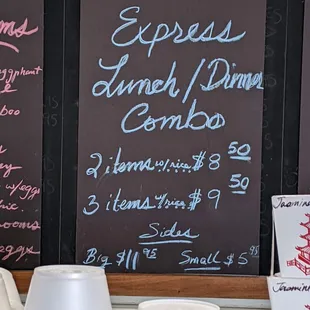 ms
eggphant
boo
w/eggs
ooms
aggs
Express
Lunch / Dinner
Combo
2 items w/rice $8 50
3 items w/rice $9 50
Sides
Big $11 95 Small $5 95
Jasmine
Jasmin